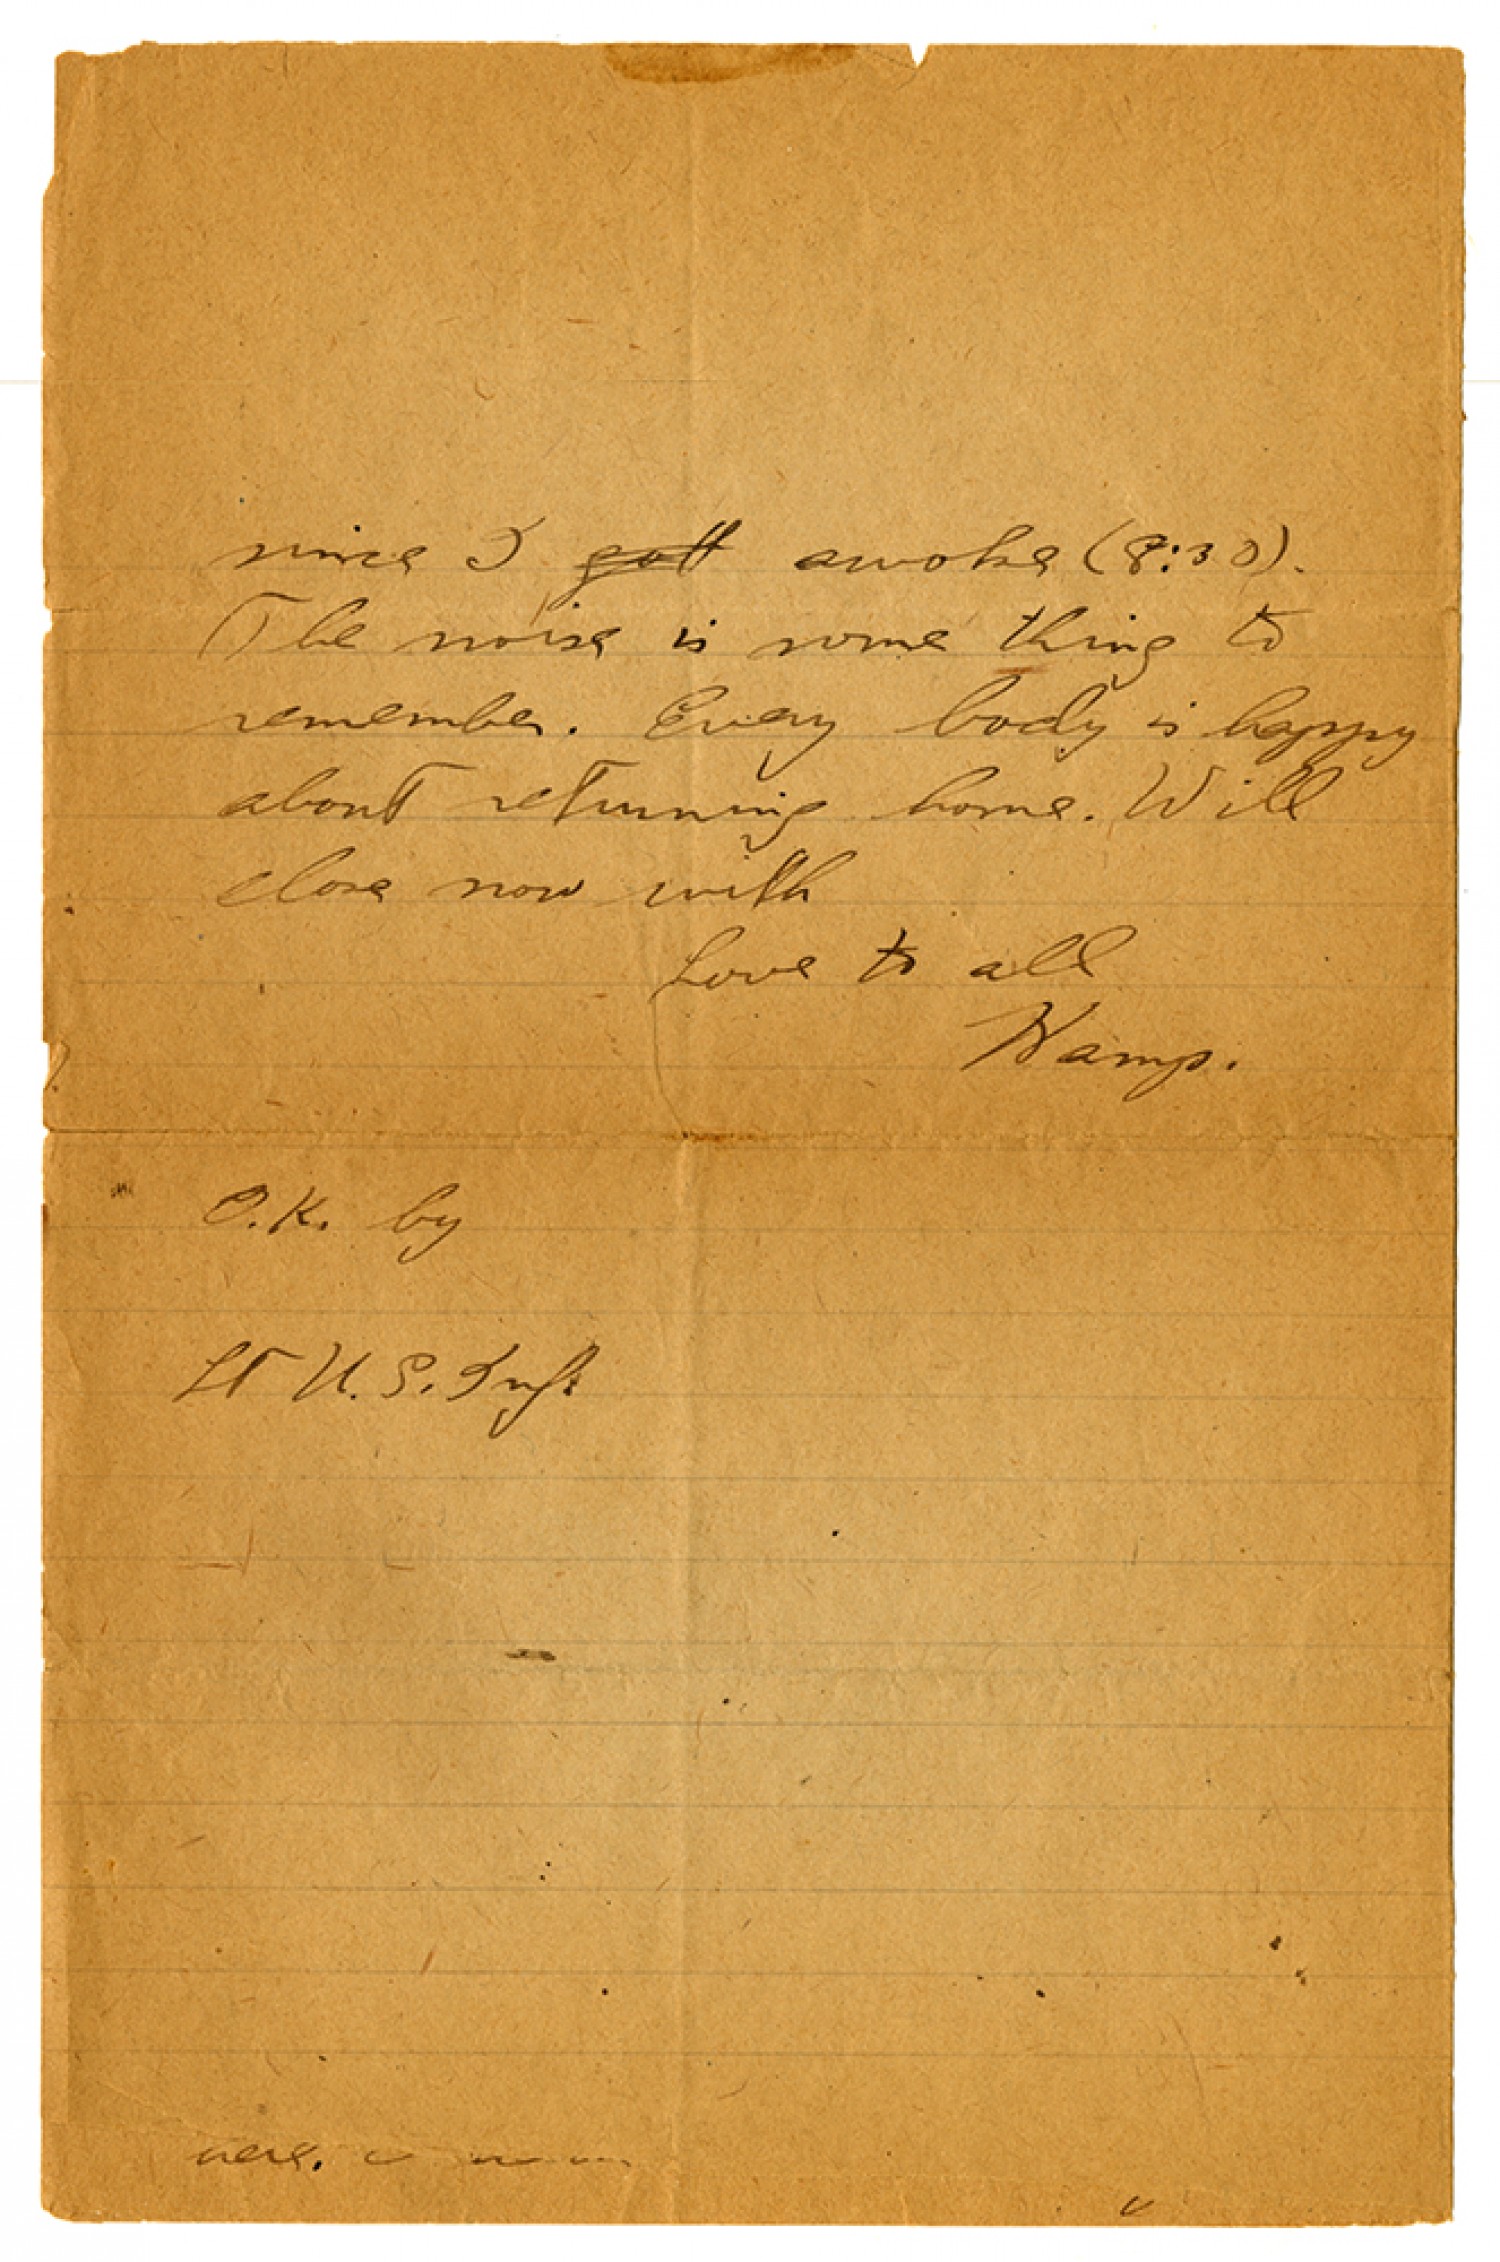 since I gott awoke (8:30).
The noise is some thing to
remember. Every body is happy
about returning home. Will
close now with
Love to all
Kamp.
O.K. by
Lt U.S. Inft